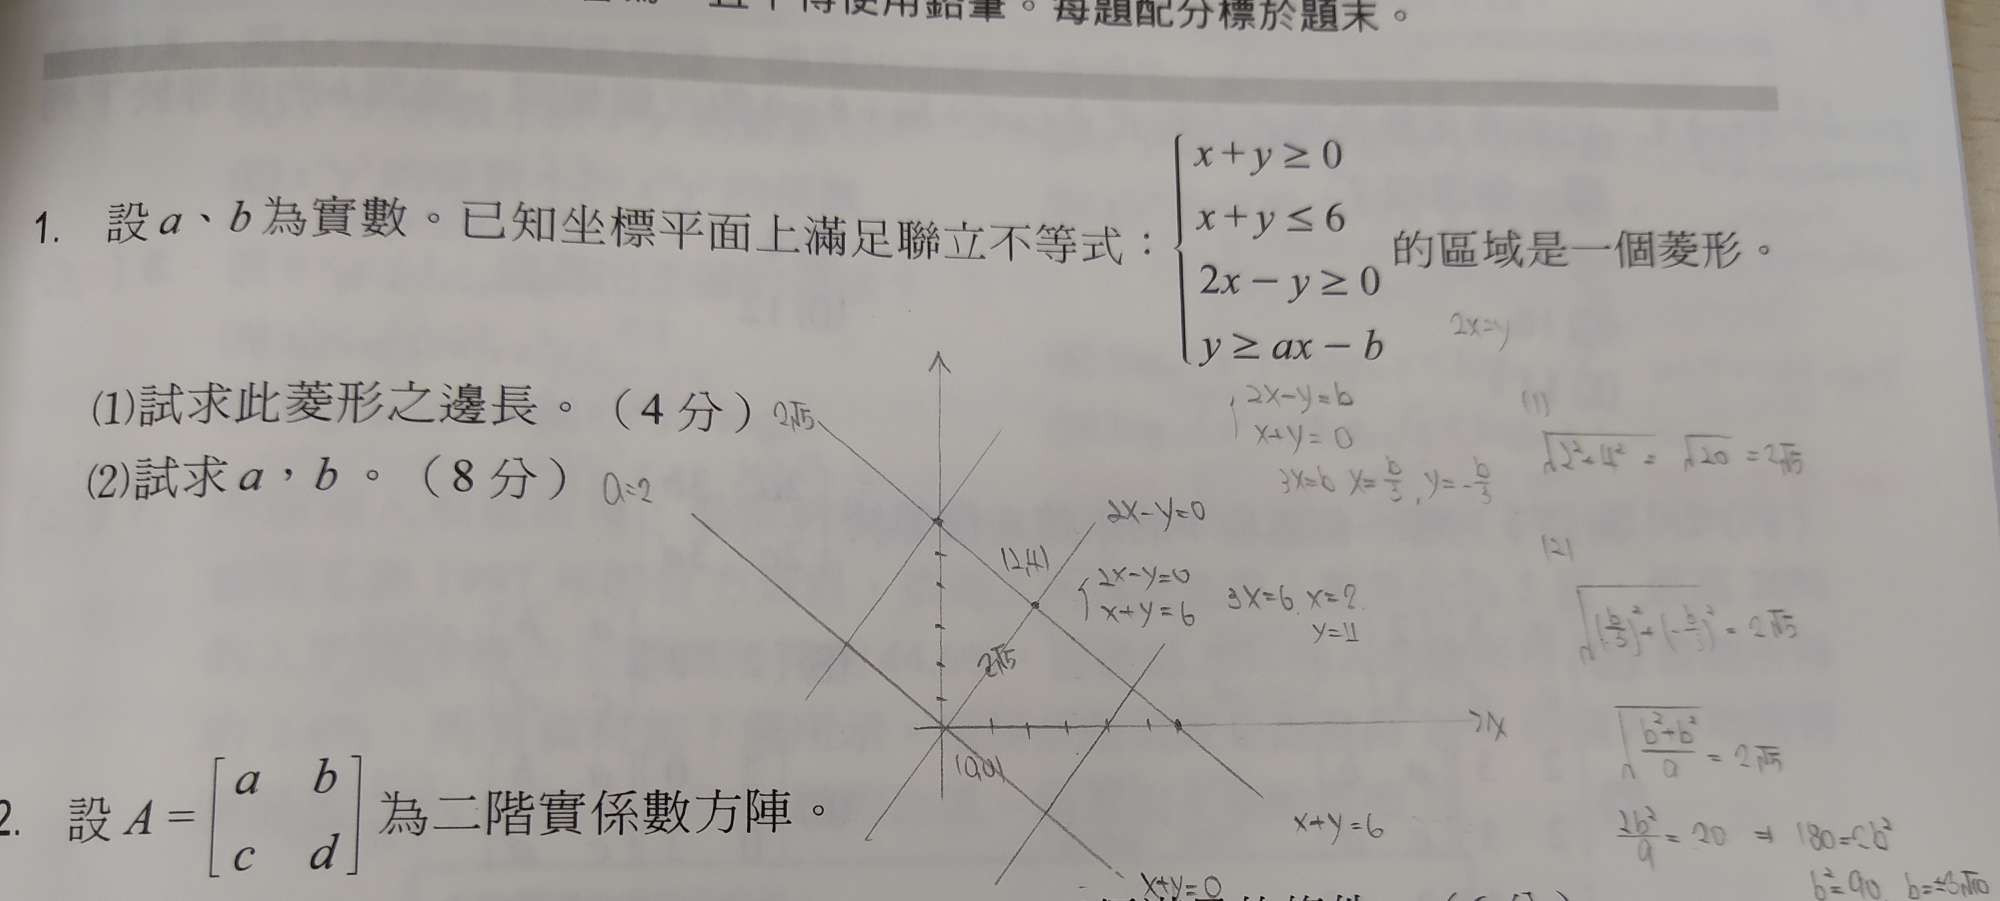 且不得使用鉛筆。每題配分標於題末。
1. 設 a、b 為實數。已知坐標平面上滿足聯立不等式：{ x+y≥0
x+y≤6
2x−y≥0
y≥ax−b 的區域是一個菱形。
2x=y
(1)試求此菱形之邊長。（4 分）2√5
(2)試求 a，b。（8 分）a=2
2x−y=b
x+y=0
3x=b x=b/3, y=−b/3
(1)
√(2²+4²) = √20 = 2√5
2x−y=0
(2,4)
2x−y=0
x+y=6
3x=6, x=2
y=4
2√5
(0,0)
x
x+y=6
x+y=0
(2)
√((b/3)²+(−b/3)²) = 2√5
√((b²+b²)/9) = 2√5
2b²/9 = 20 ⇒ 180=2b²
b²=90 b=±3√10
2. 設 A = [a b
c d] 為二階實係數方陣。